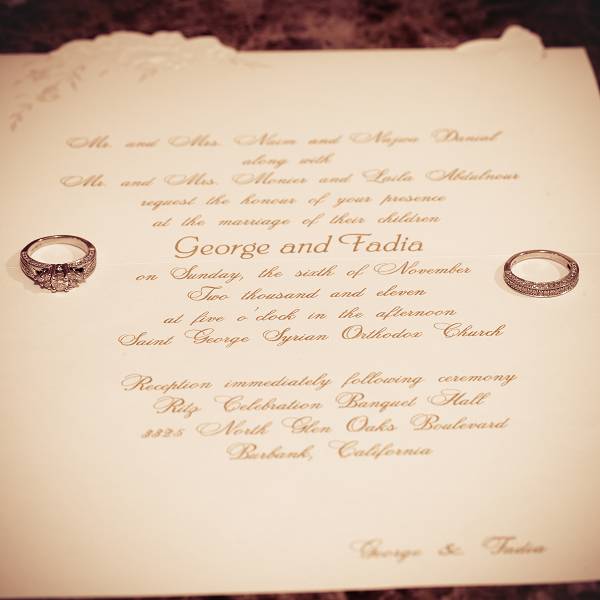 Mr. and Mrs. Naim and Najwa Danial
along with
Mr. and Mrs. Monier and Laila Abdulnour
request the honour of your presence
at the marriage of their children
George and Fadia
on Sunday, the sixth of November
Two thousand and eleven
at five o'clock in the afternoon
Saint George Syrian Orthodox Church
Reception immediately following ceremony
Ritz Celebration Banquet Hall
3325 North Glen Oaks Boulevard
Burbank, California
George & Fadia